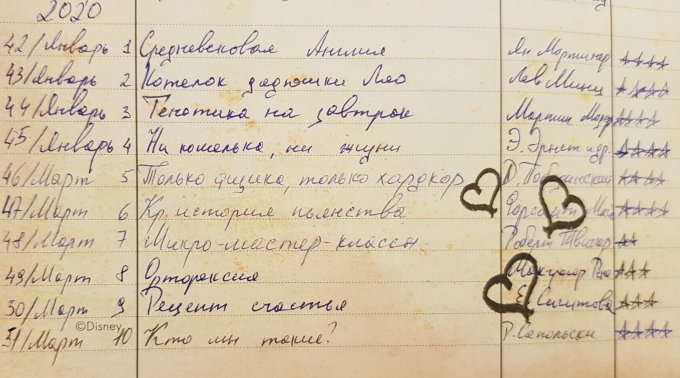 2020
42/Январь 1 Средневековая Англия Ян Мортимер ★★★★
43/Январь 2 Котелок дядюшки Лео Лев Минц ★★★★
44/Январь 3 Генетика на завтрак Мартин ★★★★
45/Январь 4 Ни кошелька, ни жизни Э. Эрнст и др. ★★★★
46/Март 5 Только физика, только хардкор Д. Побединский ★★★★
47/Март 6 Кр. история пьянства Форсайт ★★★★
48/Март 7 Микро-мастер-классы Роберт Твиггер ★★
49/Март 8 Орторексия ★★★
30/Март 9 Рецепт счастья Е. Сигитова ★★★
©Disney
31/Март 10 Кто мы такие? Р. Сапольски ★★★★